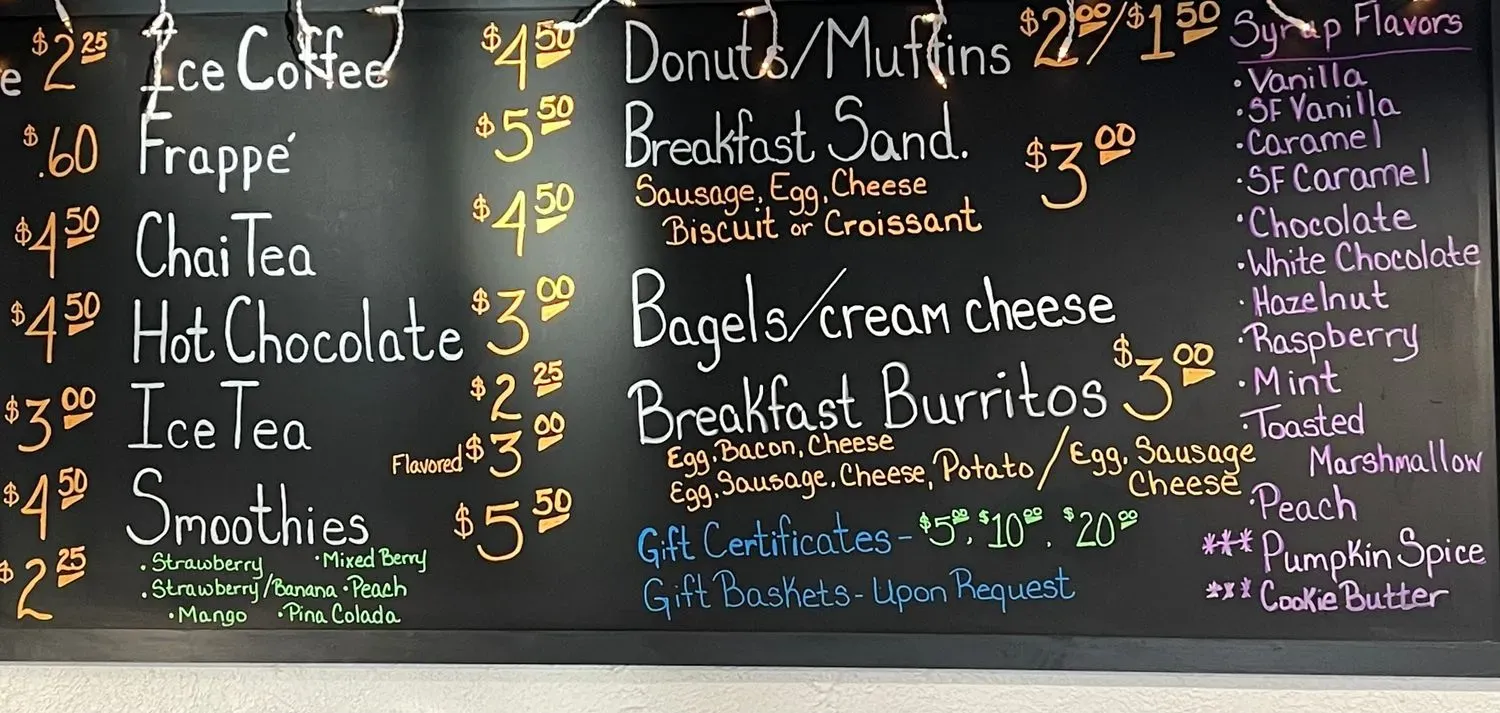 e $2.25
$.60
$4.50
$4.50
$3.00
$4.50
$2.25
Ice Coffee $4.50
Frappé $5.50
Chai Tea $4.50
Hot Chocolate $3.00
Ice Tea $2.25
Flavored $3.00
Smoothies $5.50
• Strawberry • Mixed Berry
• Strawberry/Banana • Peach
• Mango • Pina Colada
Donuts/Muffins $2.00/$1.50
Breakfast Sand. $3.00
Sausage, Egg, Cheese
Biscuit or Croissant
Bagels/cream cheese
Breakfast Burritos $3.00
Egg, Bacon, Cheese
Egg, Sausage, Cheese, Potato / Egg, Sausage
Cheese
Gift Certificates - $5.00, $10.00, $20.00
Gift Baskets - Upon Request
Syrup Flavors
• Vanilla
• SF Vanilla
• Caramel
• SF Caramel
• Chocolate
• White Chocolate
• Hazelnut
• Raspberry
• Mint
• Toasted
Marshmallow
• Peach
*** Pumpkin Spice
*** Cookie Butter